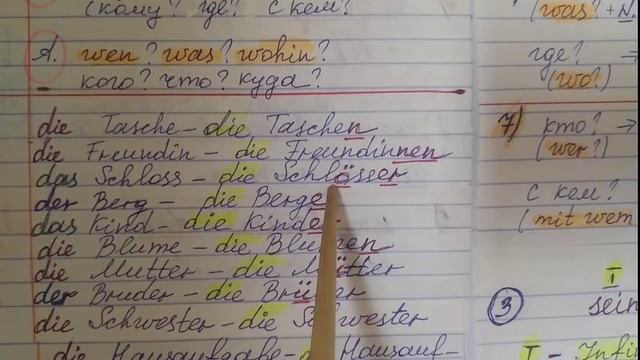 (кому? где? с кем?
A. wen? was? wohin?
кого? что? куда?
die Tasche – die Taschen
die Freundin – die Freundinnen
das Schloss – die Schlösser
der Berg – die Berge
das Kind – die Kinde
die Blume – die Blumen
die Mutter – die Mütter
der Bruder – die Brüder
die Schwester – die Schwester
die Hausaufgabe – die Hausauf-
(was? + N.
где? →
(wo?)
7) кто? →
(wer?)
с кем?
(mit wem
I
3 sein
I – Infi